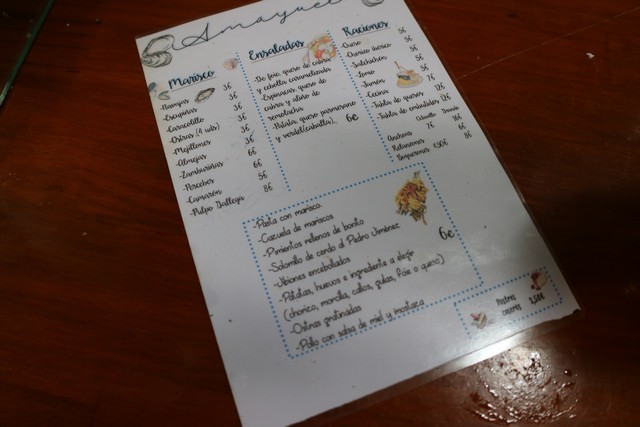 Amayuel
Marisco
-Navajas 3€
-Escupinas 3€
-Caracolillo 3€
-Ostras (4 uds) 3€
-Mejillones 3€
-Almejas 6€
-Zamburiñas 6€
-Percebes 5€
-Camarón 8€
-Pulpo Gallego
Ensaladas
-De foie, queso de cabra
y cebolla caramelizada
-Espinacas, queso de
cabra y aliño de
remolacha
-Patata, queso parmesano
y verdel(caballa). 6€
Raciones
-Queso 5€
-Chorizo ibérico 5€
-Salchichón 5€
-Lomo 5€
-Jamón
-Cecina 7€
-Tabla de quesos 12€
-Tabla de embutidos 12€
Anchoas 7€ 16€
Rellenas 6€
Boquerones 4,50€ 8€
-Pasta con marisco.
-Cazuela de mariscos
-Pimientos rellenos de bonito
-Solomillo de cerdo al Pedro Jiménez
-Jibiones encebollados 6€
-Patatas, huevos e ingrediente a elegir
(chorizo, morcilla, callos, gulas, foie o queso)
-Ostras gratinadas
-Pollo con salsa de miel y mostaza
Postres
caseros 2,50€